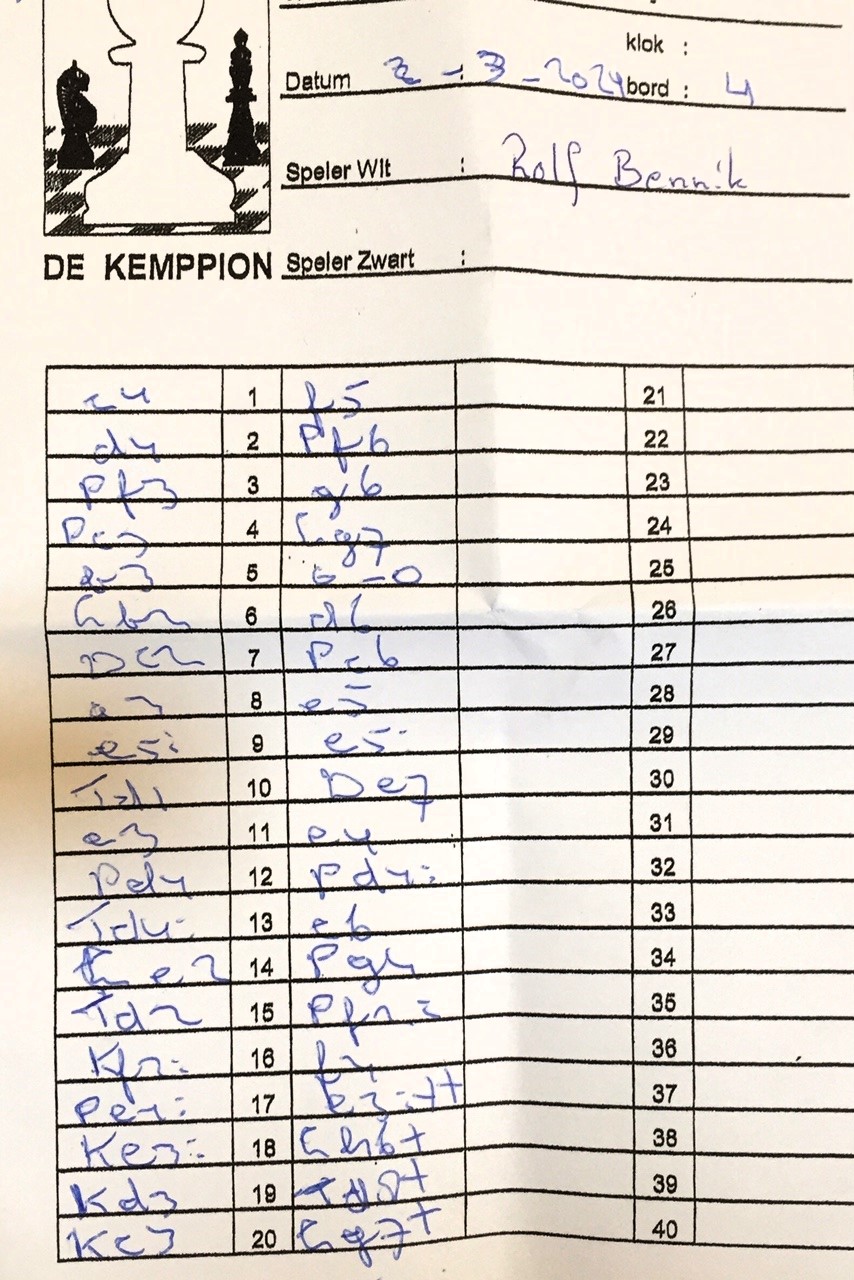 klok :
Datum : 2 - 3 - 2024 bord : 4
Speler Wit : Rolf Bennik
DE KEMPPION Speler Zwart :
c4 1 f5 21
d4 2 Pf6 22
Pf3 3 g6 23
Pc3 4 Lg7 24
b3 5 0-0 25
Lb2 6 d6 26
Dc2 7 Pc6 27
a3 8 e5 28
e5: 9 e5: 29
Td1 10 De7 30
e3 11 e4 31
Pd4 12 Pd4: 32
Td4: 13 c6 33
Le2 14 Pg4 34
Td2 15 Pf2: 35
Kf2: 16 f4 36
Pe4: 17 e3:++ 37
Ke3: 18 Lh6+ 38
Kd3 19 Td8+ 39
Kc3 20 Lg7+ 40